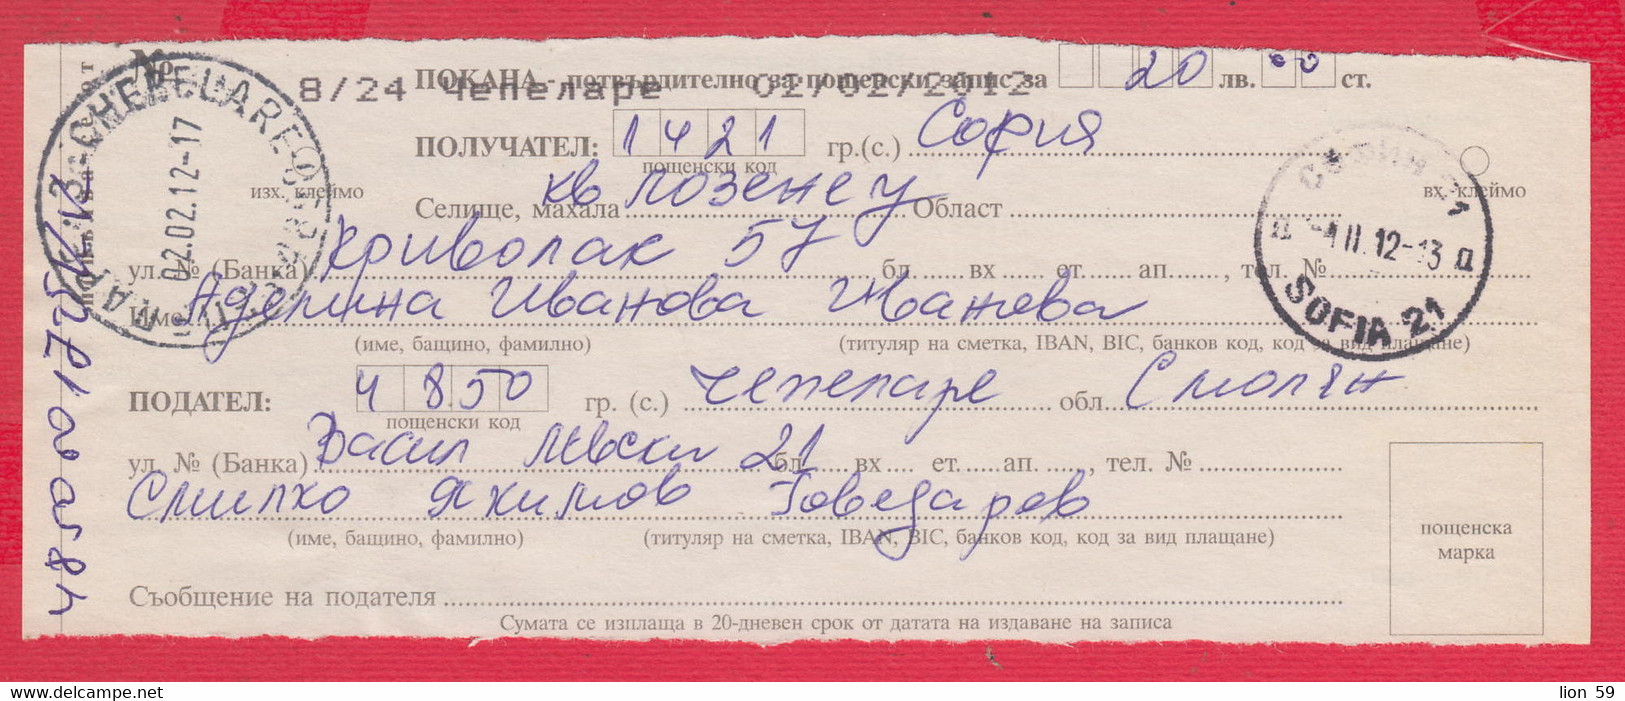 №
8/24 Чепеларе 02/02/2012
ПОКАНА - потвърдително за пощенски запис за 20 лв. 00 ст.
ПОЛУЧАТЕЛ: 1421 гр.(с.) София
пощенски код
изх. клеймо
вх. клеймо
Селище, махала кв Лозенец Област
ул. № (Банка) Криволак 57 бл. вх ет. ап. , тел. №
Име Аделина Иванова
(име, бащино, фамилно) (титуляр на сметка, IBAN, BIC, банков код, код за вид плащане)
ПОДАТЕЛ: 4850 гр. (с.) Чепеларе обл. Смолян
пощенски код
ул. № (Банка) Васил Левски 21 бл. вх ет. ап. , тел. №
Смилко Якимов Говедаров
(име, бащино, фамилно) (титуляр на сметка, IBAN, BIC, банков код, код за вид плащане)
пощенска
марка
Съобщение на подателя
Сумата се изплаща в 20-дневен срок от датата на издаване на записа
02.02.12-17
II.12-13
SOFIA 21
lion 59